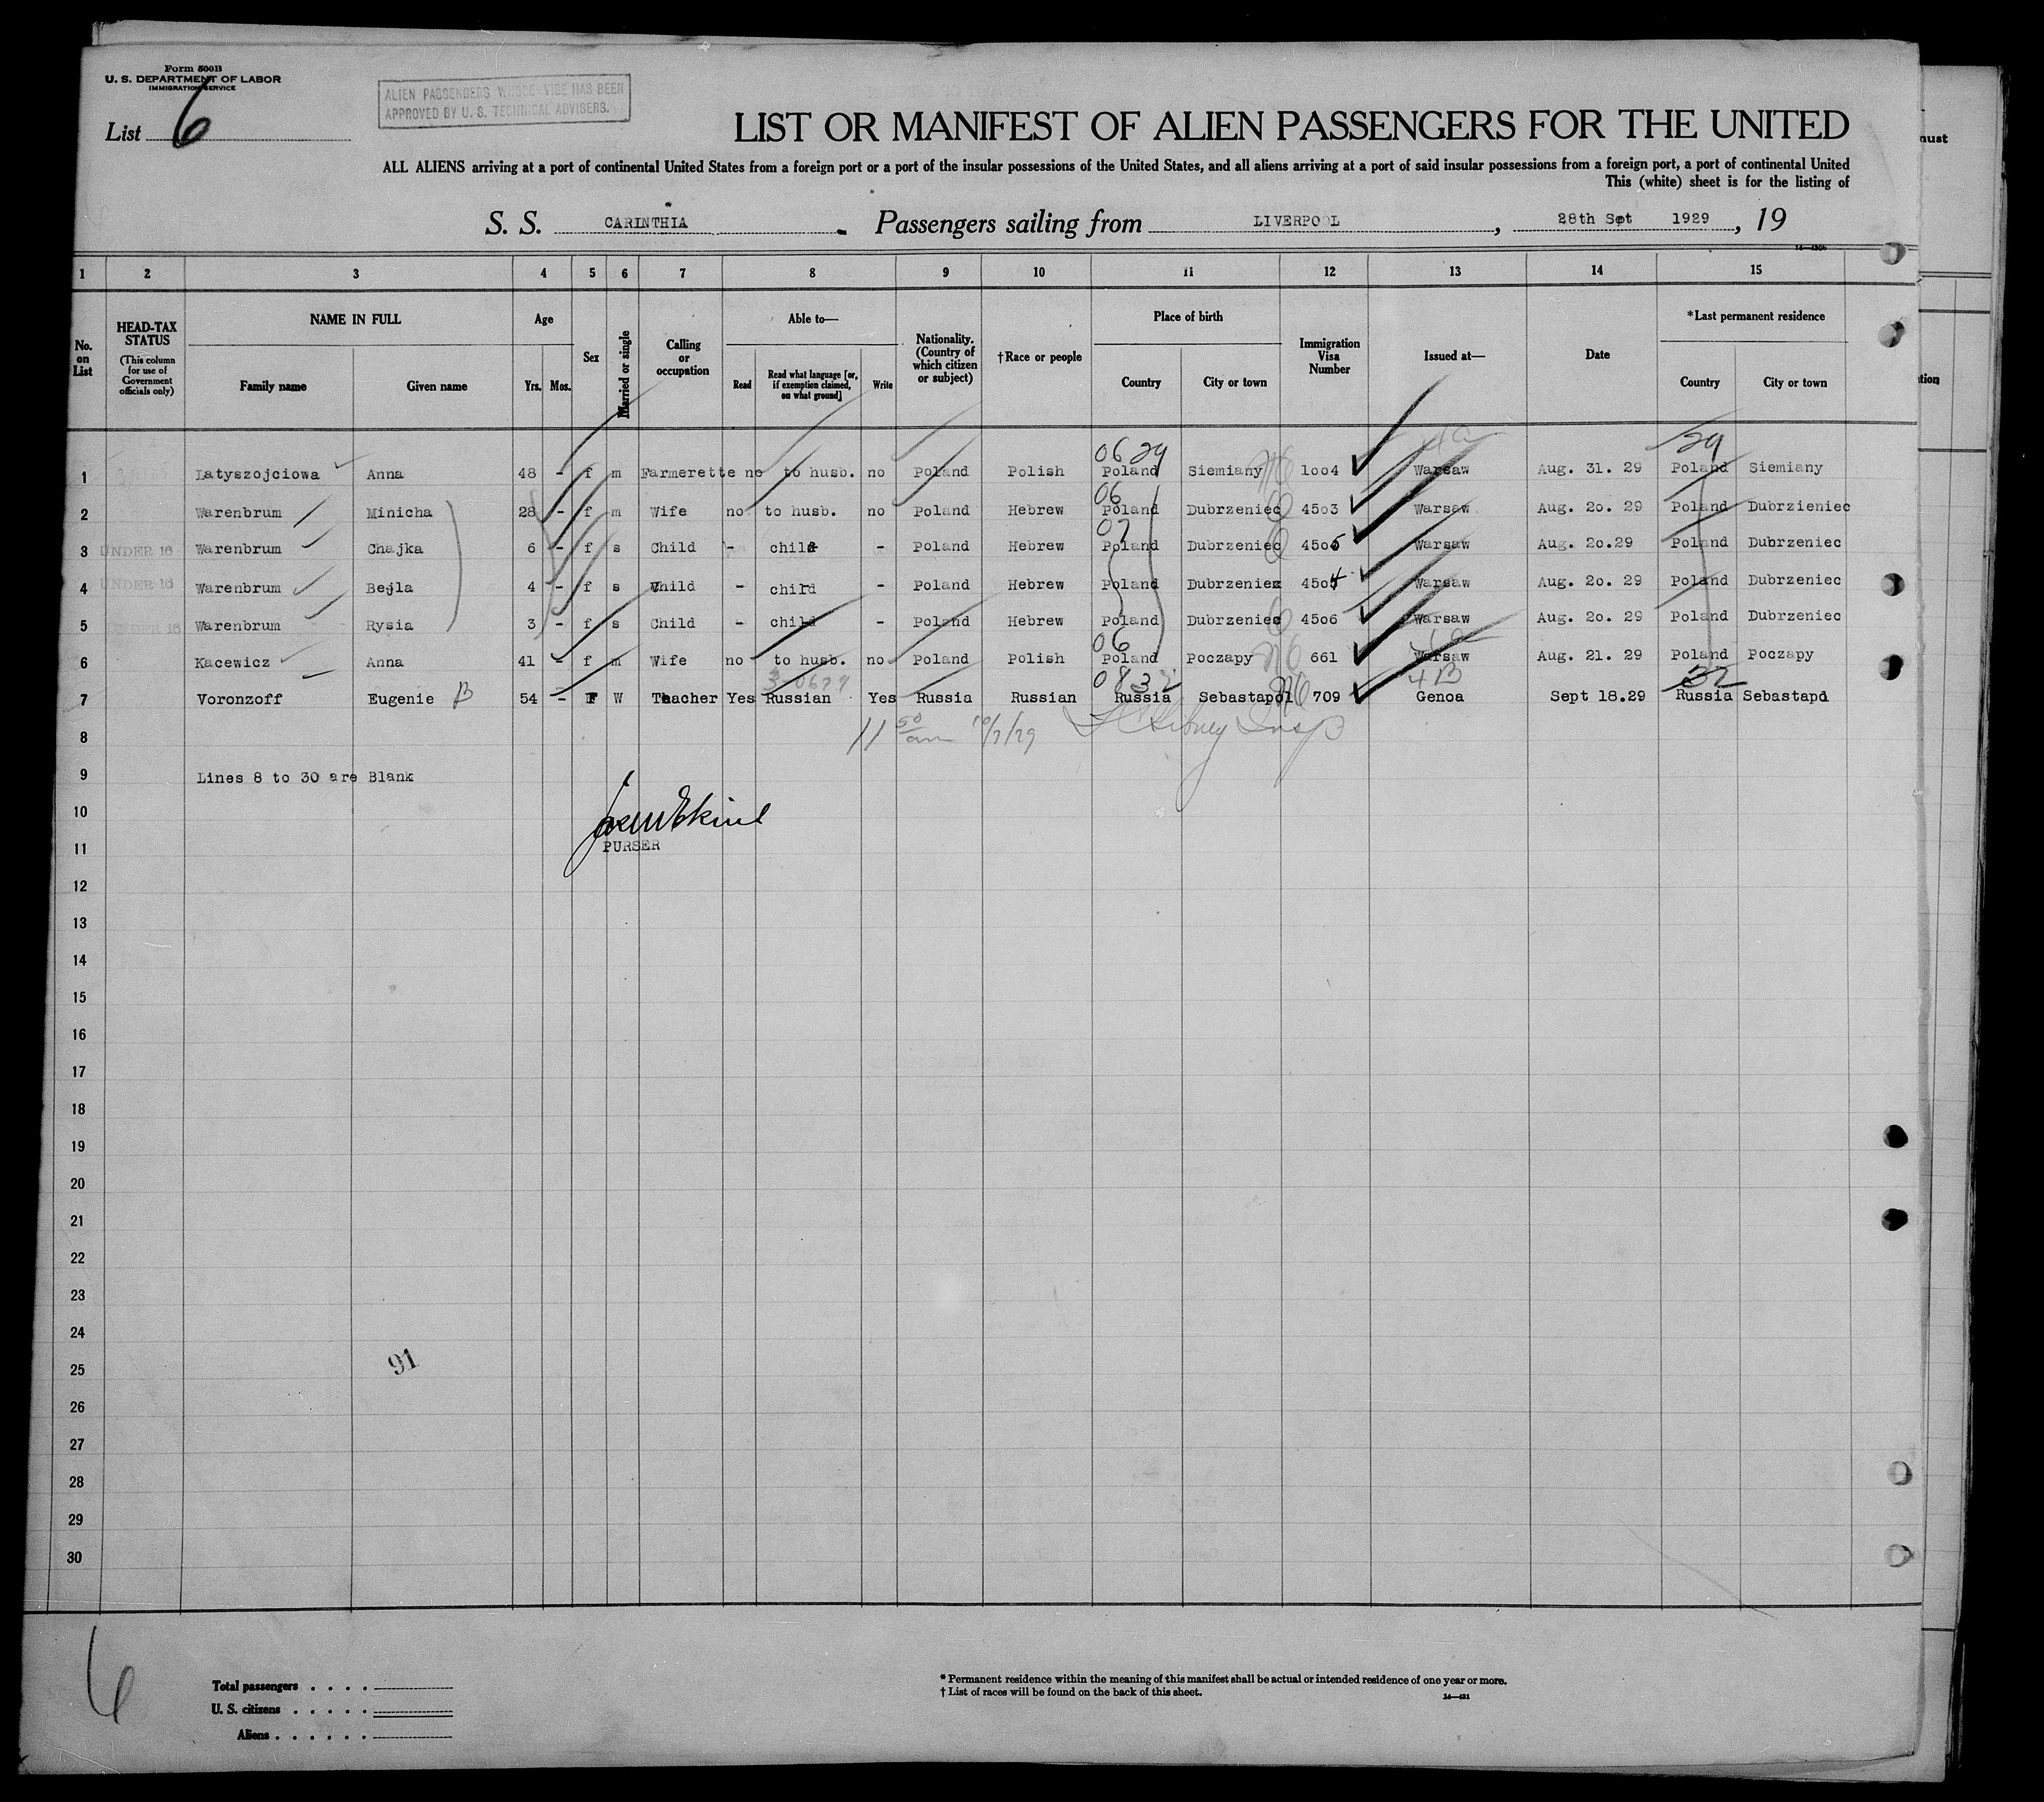 Form 500B
U. S. DEPARTMENT OF LABOR
IMMIGRATION SERVICE
List 6
ALIEN PASSENGERS WHOSE VISE HAS BEEN
APPROVED BY U. S. TECHNICAL ADVISERS.
LIST OR MANIFEST OF ALIEN PASSENGERS FOR THE UNITED
ALL ALIENS arriving at a port of continental United States from a foreign port or a port of the insular possessions of the United States, and all aliens arriving at a port of said insular possessions from a foreign port, a port of continental United
This (white) sheet is for the listing of
S. S. CARINTHIA Passengers sailing from LIVERPOOL, 28th Sept 1929, 19
1 2 3 4 5 6 7 8 9 10 11 12 13 14 15
No. on List
HEAD-TAX STATUS (This column for use of Government officials only)
NAME IN FULL Family name Given name
Age Yrs. Mos.
Sex
Married or single
Calling or occupation
Able to— Read Read what language [or, if exemption claimed, on what ground] Write
Nationality. (Country of which citizen or subject)
†Race or people
Place of birth Country City or town
Immigration Visa Number
Issued at—
Date
*Last permanent residence Country City or town
0629 29
1 Latyszojciowa Anna 48 - f m Farmerette no to husb. no Poland Polish Poland Siemiany 1004 Warsaw Aug. 31. 29 Poland Siemiany
06
2 Warenbrum Minicha 28 - f m Wife no to husb. no Poland Hebrew Poland Dubrzeniec 4503 Warsaw Aug. 20. 29 Poland Dubrzieniec
07
3 UNDER 16 Warenbrum Chajka 6 - f s Child - child - Poland Hebrew Poland Dubrzeniec 4505 Warsaw Aug. 20.29 Poland Dubrzeniec
4 UNDER 16 Warenbrum Bejla 4 - f s Child - child - Poland Hebrew Poland Dubrzeniec 4504 Warsaw Aug. 20. 29 Poland Dubrzeniec
5 UNDER 16 Warenbrum Rysia 3 - f s Child - child - Poland Hebrew Poland Dubrzeniec 4506 Warsaw Aug. 20. 29 Poland Dubrzeniec
06
6 Kacewicz Anna 41 - f m Wife no to husb. no Poland Polish Poland Poczapy 661 Warsaw Aug. 21. 29 Poland Poczapy
3-0679 0832 4B 32
7 Voronzoff Eugenie B 54 - F W Teacher Yes Russian Yes Russia Russian Russia Sebastapol 709 Genoa Sept 18.29 Russia Sebastapol
8 11 50 am 10/7/29 Insp
9 Lines 8 to 30 are Blank
10
11 PURSER
12
13
14
15
16
17
18
19
20
21
22
23
24
25 91
26
27
28
29
30
6
Total passengers
U. S. citizens
Aliens
* Permanent residence within the meaning of this manifest shall be actual or intended residence of one year or more.
† List of races will be found on the back of this sheet.
14—421